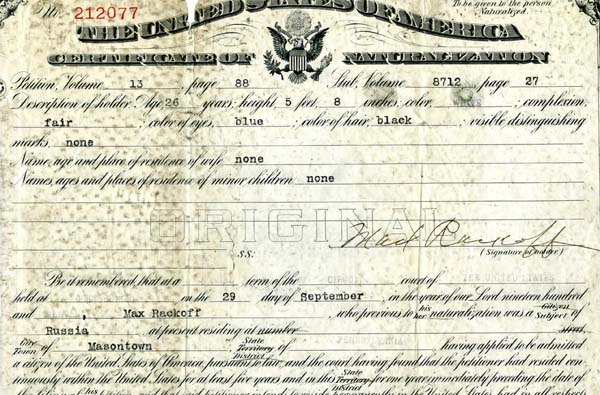 No. 212077
To be given to the person
Naturalized.
THE UNITED STATES OF AMERICA
CERTIFICATE OF NATURALIZATION
Petition, Volume 13 page 88 Stub, Volume 8712 page 27
Description of holder: Age 26 years; height, 5 feet, 8 inches; color, WHITE; complexion,
fair; color of eyes, blue; color of hair, black; visible distinguishing
marks, none
Name, age and place of residence of wife none
Names, ages and places of residence of minor children none
ORIGINAL
s.s.: Max Rackoff
(Signature of holder)
Be it remembered, that at a term of the court of THE UNITED STATES
held at on the 29 day of September, in the year of our Lord nineteen hundred
and , Max Rackoff, who previous to his her naturalization was a Citizen Subject of
Russia at present residing at number street
City Town of Masontown State Territory District of having applied to be admitted
a citizen of the United States of America, pursuant to law, and the court having found that the petitioner had resided con-
tinuously within the United States for at least five years and in this State Territory District for one year immediately preceding the date of